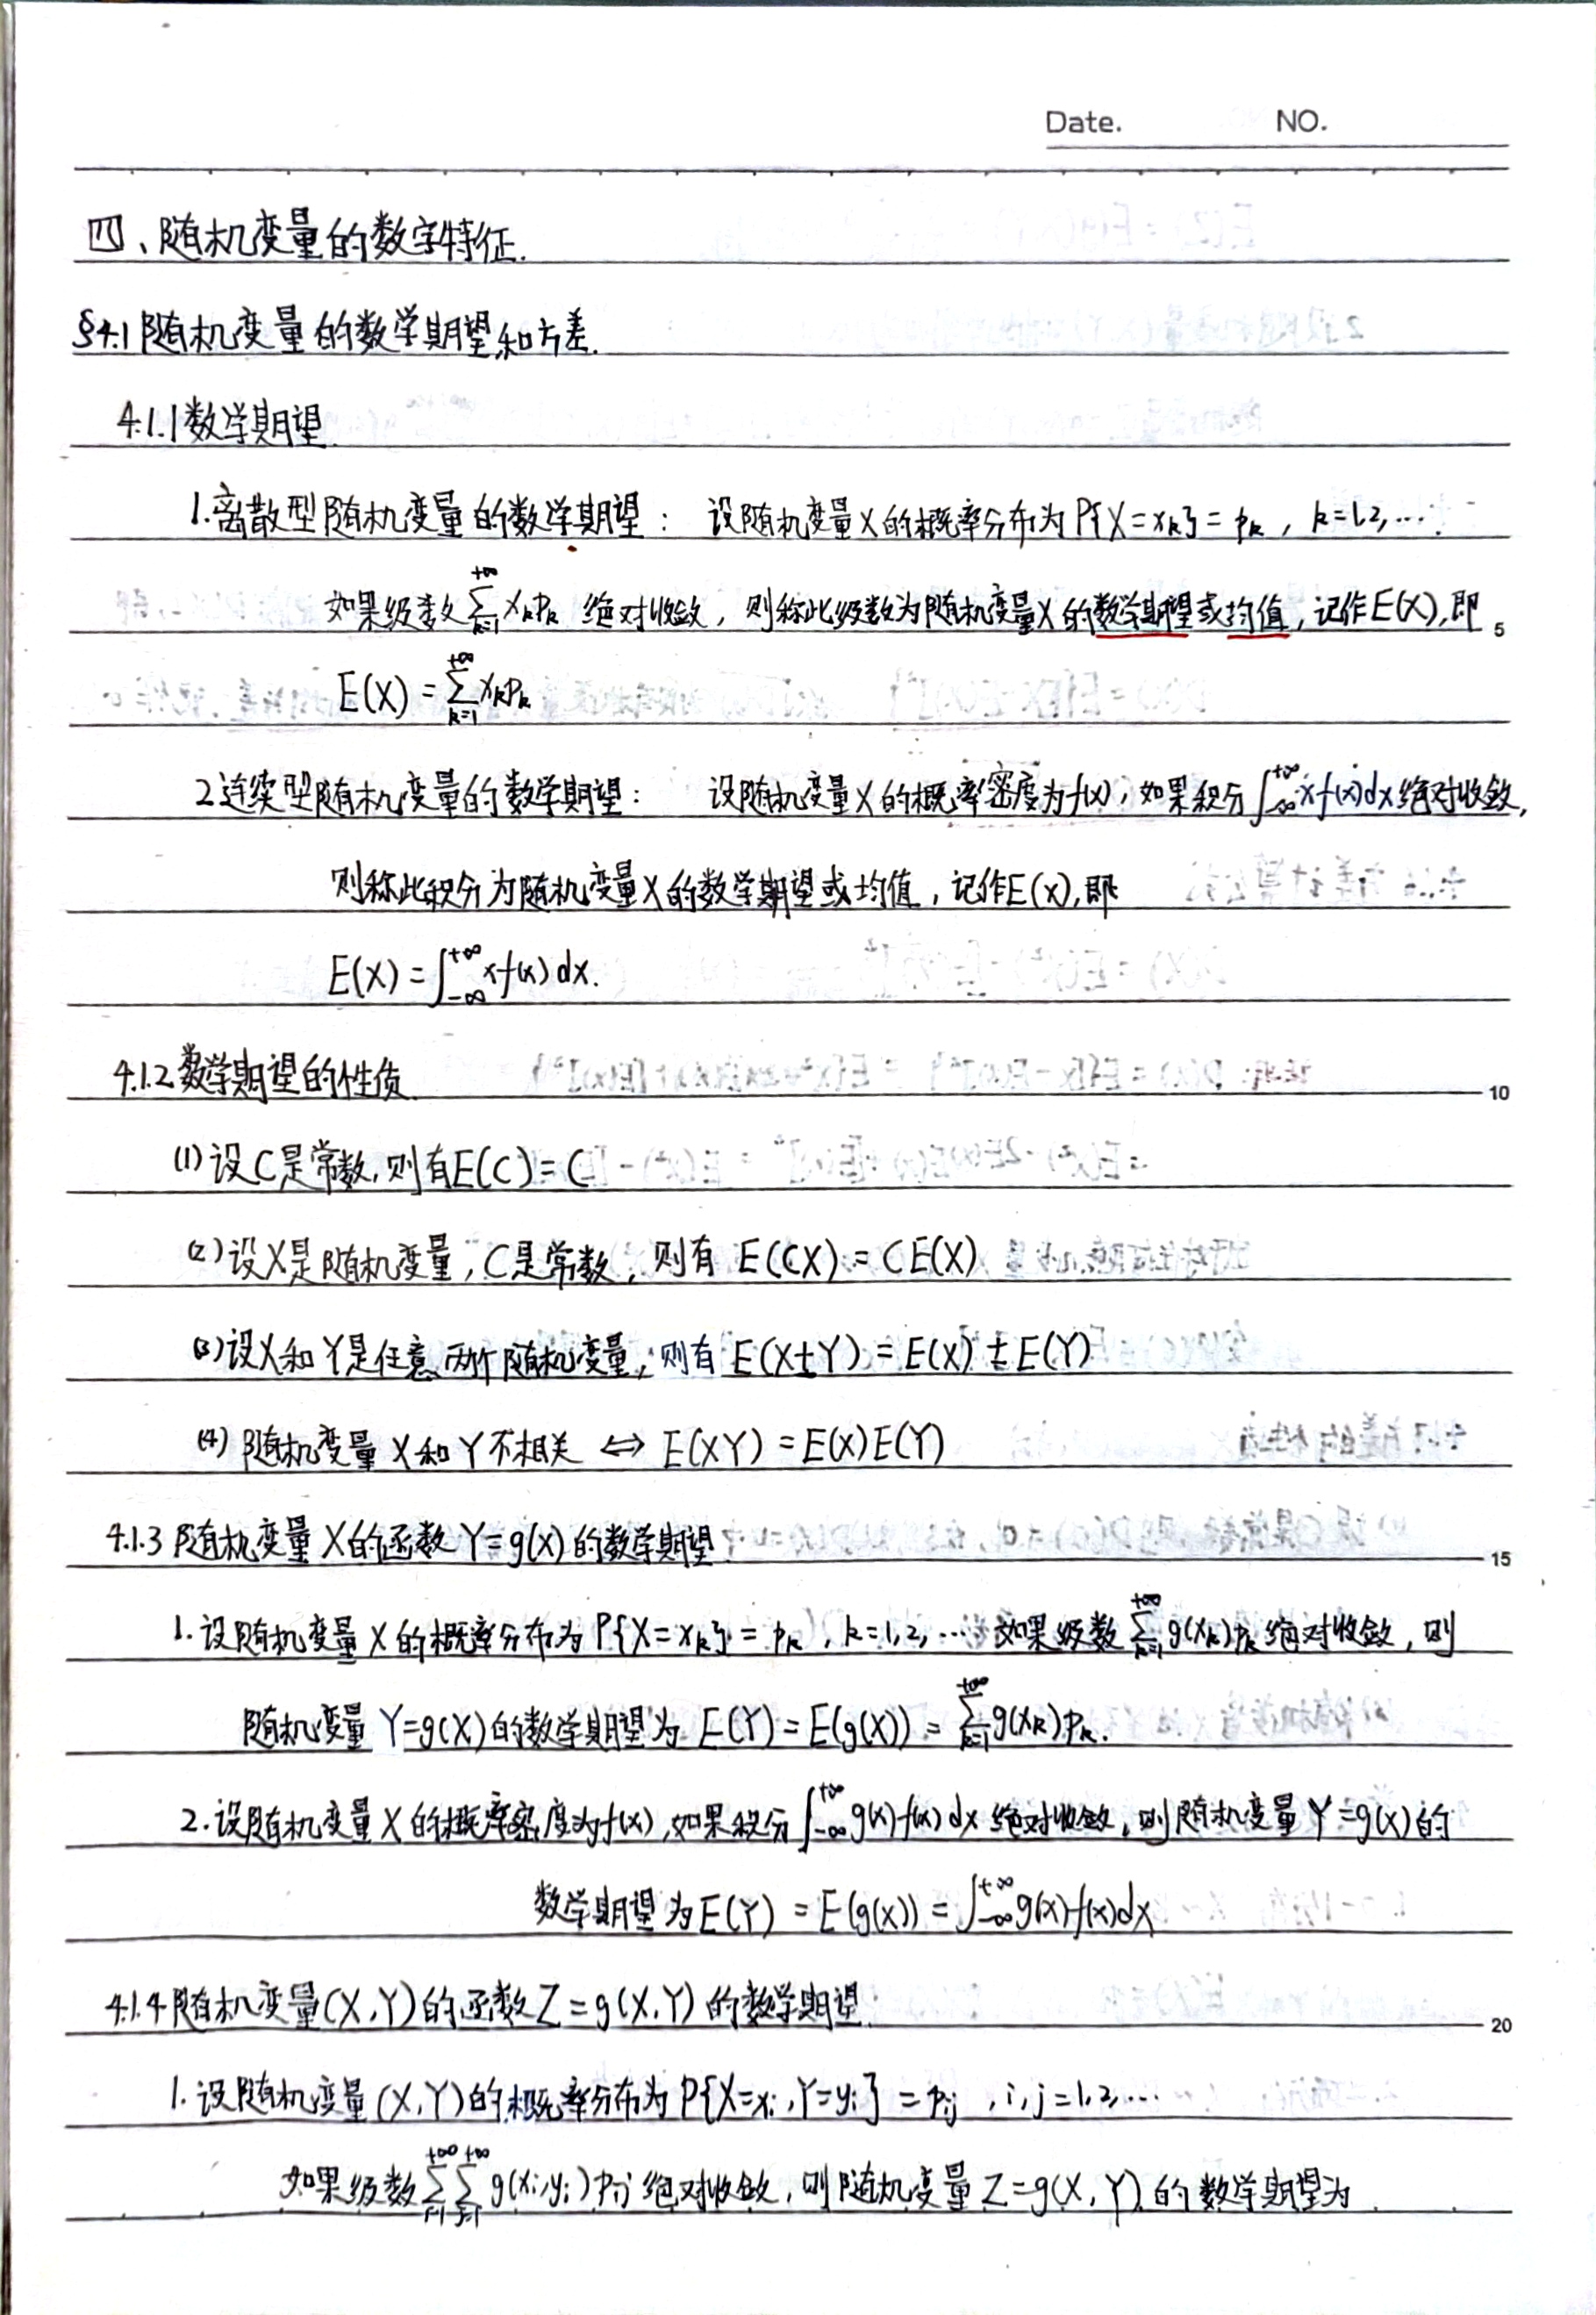 Date. NO.
四、随机变量的数字特征.
§4.1 随机变量的数学期望和方差.
4.1.1 数学期望.
1.离散型随机变量的数学期望： 设随机变量X的概率分布为P{X=xₖ}=pₖ, k=1,2,….
如果级数∑_{k=1}^{+∞} xₖpₖ 绝对收敛，则称此级数为随机变量X的数学期望或均值，记作E(X),即
5
E(X)=∑_{k=1}^{+∞} xₖpₖ
2.连续型随机变量的数学期望： 设随机变量X的概率密度为f(x),如果积分∫_{-∞}^{+∞} xf(x)dx绝对收敛,
则称此积分为随机变量X的数学期望或均值，记作E(X),即
E(X)=∫_{-∞}^{+∞} xf(x)dx.
4.1.2 数学期望的性质.
10
(1)设C是常数,则有E(C)=C
(2)设X是随机变量,C是常数,则有 E(CX)=CE(X)
(3)设X和Y是任意两个随机变量,则有 E(X±Y)=E(X)±E(Y)
(4)随机变量X和Y不相关 ⇔ E(XY)=E(X)E(Y)
4.1.3 随机变量X的函数Y=g(X)的数学期望.
15
1.设随机变量X的概率分布为P{X=xₖ}=pₖ, k=1,2,… 如果级数∑_{k=1}^{+∞} g(xₖ)pₖ绝对收敛，则
随机变量Y=g(X)的数学期望为 E(Y)=E(g(X))=∑_{k=1}^{+∞} g(xₖ)pₖ.
2.设随机变量X的概率密度为f(x),如果积分∫_{-∞}^{+∞} g(x)f(x)dx绝对收敛,则随机变量Y=g(X)的
数学期望为E(Y)=E(g(X))=∫_{-∞}^{+∞} g(x)f(x)dx
4.1.4 随机变量(X,Y)的函数Z=g(X,Y)的数学期望.
20
1.设随机变量(X,Y)的概率分布为P{X=xᵢ,Y=yᵢ}=pᵢⱼ, i,j=1,2,…
如果级数∑_{i=1}^{+∞}∑_{j=1}^{+∞} g(xᵢ,yᵢ)pᵢⱼ绝对收敛,则随机变量Z=g(X,Y)的数学期望为